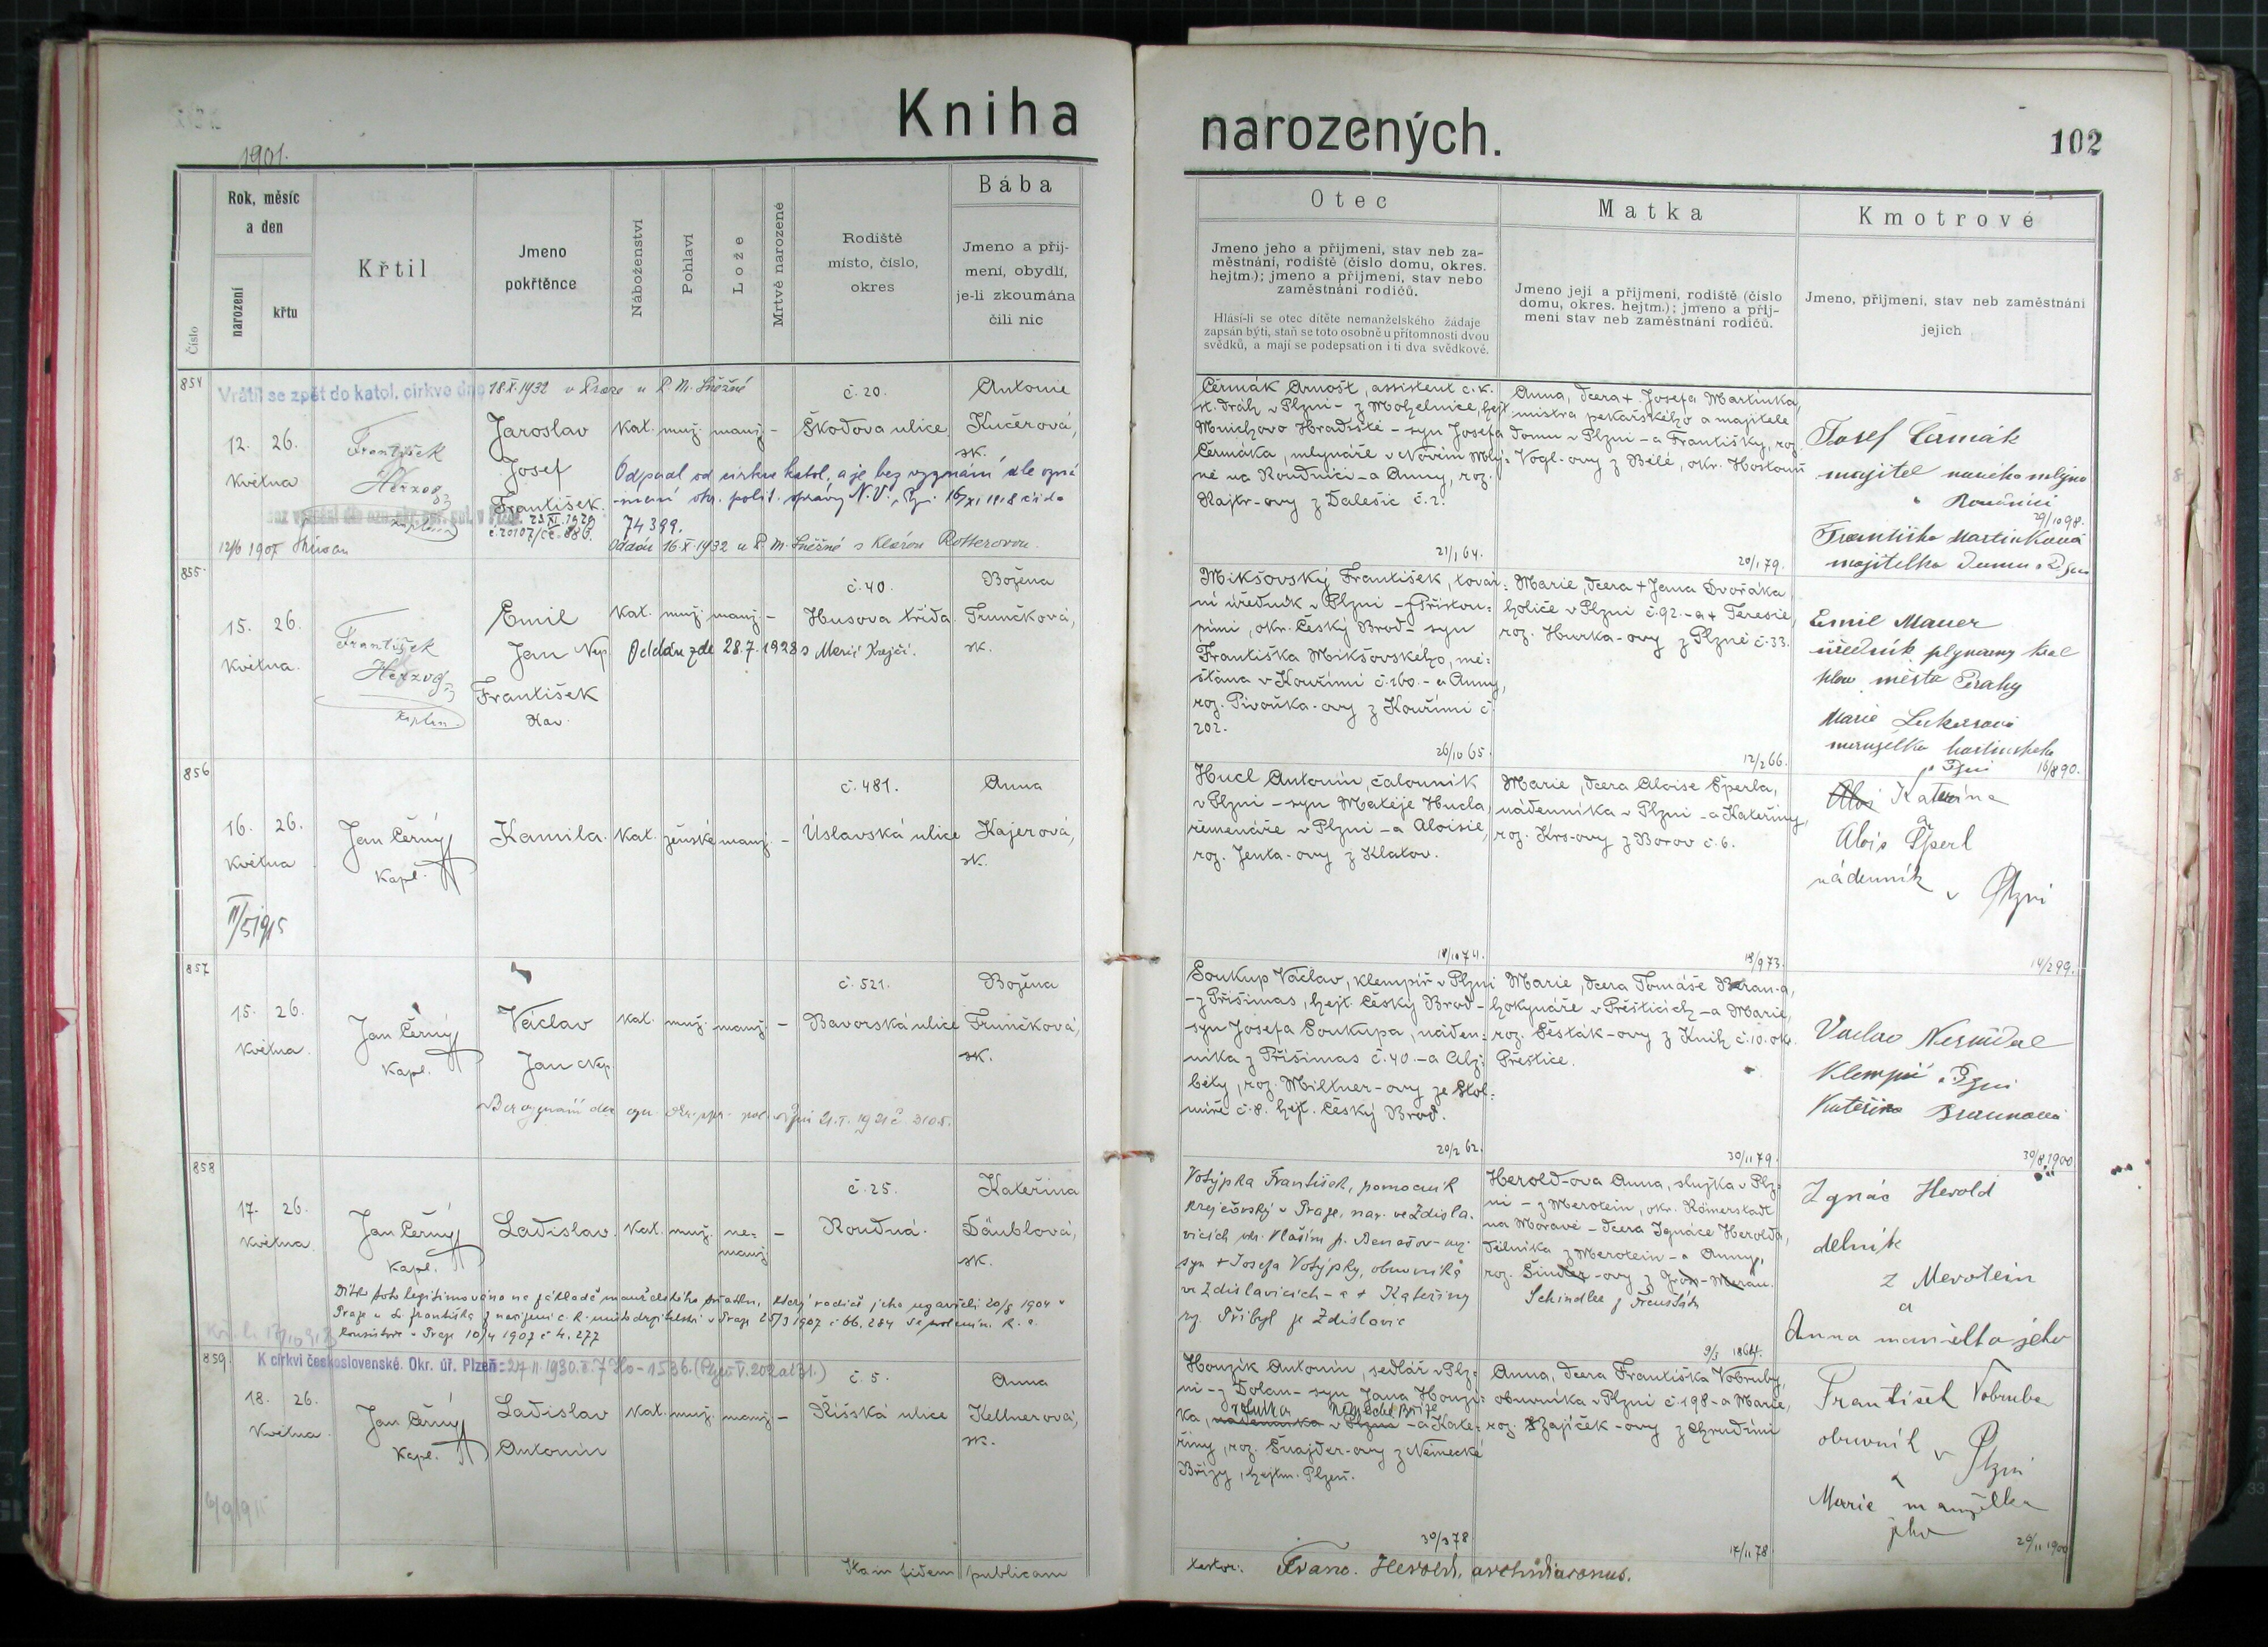 Kniha
narozených.
102
1901.
Číslo
Rok, měsíc
a den
narození
křtu
Křtil
Jmeno
pokřtěnce
Náboženství
Pohlaví
Lože
Mrtvě narozené
Rodiště
místo, číslo,
okres
Bába
Jmeno a přij-
mení, obydlí,
je-li zkoumána
čili nic
Otec
Jmeno jeho a přijmení, stav neb za-
městnání, rodiště (číslo domu, okres.
hejtm.); jmeno a přijmení, stav nebo
zaměstnání rodičů.
Hlásí-li se otec dítěte nemanželského žádaje
zapsán býti, staň se toto osobně u přítomnosti dvou
svědků, a mají se podepsati on i ti dva svědkové.
Matka
Jmeno její a přijmení, rodiště (číslo
domu, okres. hejtm.); jmeno a přij-
mení stav neb zaměstnání rodičů.
Kmotrové
Jmeno, přijmení, stav neb zaměstnání
jejich
854
Vrátil se zpět do katol. církve dne 18.X.1932 v Praze u P. M. Sněžné
12. 26.
Května
František
Herzog
kaplan
Jaroslav
Josef
František.
Kat. muž. manž. -
č. 20.
Škodova ulice
Antonie
Kučerová,
zk.
Odpadl od církve katol. a je bez vyznání dle ozná-
-mení okr. polit. správy
74399.
Oddán 16.X.1932 u P. M. Sněžné s Klárou Rotterovou.
12/6 1907
Čermák Arnošt, assistent c. k.
st. drah v Plzni - z Mohelnice, hejt
Mnichovo Hradiště - syn Josefa
Čermáka, mlynáře v Novém Mlý-
ně na Roudnici - a Anny, roz.
Hajtr-ovy z Dalešic č. 2.
21/1 64.
Anna, dcera + Josefa Martínka,
mistra pekařského a majitele
domu v Plzni - a Františky, roz.
Vogl-ovy z Bělé, okr. Hostouň
20/1 79.
Josef Čermák
majitel nového mlýna
Roudnici
29/10 98.
Františka Martinková
majitelka domu v Plzni
855.
15. 26.
Května.
František
Herzog
kaplan
Emil
Jan Nep.
František
Xav.
Kat. muž. manž. -
č. 40.
Husova třída
Božena
Trunčková,
zk.
Oddán zde 28.7.1928 s Marií Krejčí.
Mikšovský František, továr-
ní úředník v Plzni - z Přistou-
pimi, okr. Český Brod - syn
Františka Mikšovského, mě-
šťana v Kouřimi č. 160. - a Anny,
roz. Pivoňka-ovy z Kouřimi č.
202.
26/10 65.
Marie, dcera + Jana Dvořáka,
holiče v Plzni č. 92. - a + Teresie,
roz. Hurka-ovy z Plzně č. 33.
12/2 66.
Emil Mauer
úředník plynárny král
hlav města Prahy
Marie Lukasová
manželka
v Plzni 16/8 90.
856
16. 26.
Května
Jan Černý
kapl.
Kamila.
Kat. ženské manž. -
č. 481.
Úslavská ulice
Anna
Kajerová,
zk.
11/5 1915
Hucl Antonín, čalouník
v Plzni - syn Matěje Hucla,
řemenáře v Plzni - a Aloisie,
roz. Jenta-ovy z Klatov.
Marie, dcera Aloise Šperla,
nádenníka v Plzni - a Kateřiny,
roz. Krs-ovy z Borov č. 6.
19/9 73.
Alois Kateřina
a
Alois Šperl
nádenník
v Plzni
14/2 99.
857
15. 26.
Května.
Jan Černý
Kapl.
Václav
Jan Nep.
Kat. muž. manž. -
č. 521.
Bavorská ulice
Božena
Trunčková,
zk.
Bez vyznání dle ozn. okr. spr. pol. v Plzni 21.I.1921 č. 3105.
Soukup Václav, klempíř v Plzni
- z Přišimas, hejt. Český Brod -
syn Josefa Soukupa, náden-
níka z Přišimas č. 40. - a Alž-
běty, roz. Miltner-ovy ze Štol-
míře č. 8. hejt. Český Brod.
20/2 62.
Marie, dcera Tomáše Beran-a,
hokynáře v Přešticích - a Marie,
roz. Šesták-ovy z Knih č. 10. okr.
Přeštice.
30/11 79.
Václav Nesnídal
Klempíř v Plzni
Kateřina Braunová
30/8 1900
858
17. 26.
Května.
Jan Černý
Kapl.
Ladislav
Kat. muž. ne-
manž. -
č. 25.
Roudná.
Kateřina
Däublová,
zk.
Dítko toto legitimováno na základě manželského sňatku, který rodiče jeho uzavřeli 20/8 1904 v
Praze u sv. Františka z nařízení c. k. místodržitelství v Praze 25/3 1907 č. 66.284
konsistoře v Praze 10/4 1907 č. 4.277
Votýpka František, pomocník
krejčovský v Praze, nar. ve Zdisla-
vicích okr. Vlašim
syn + Josefa Votýpky, obuvníka
ve Zdislavicích - a + Kateřiny
roz. Přibyl ze Zdislavic
Herold-ova Anna, služka v Plz-
ni - z Merotein, okr. Römerstadt
na Moravě - dcera Ignáce Herolda,
dělníka z Merotein - a Anny,
roz. Šindler-ovy z Gross-Meran.
Schindler
9/5 1864.
Ignác Herold
dělník
z Merotein
a
Anna manželka jeho
859.
K církvi československé. Okr. úř. Plzeň: 27.11.1930
18. 26.
Května.
Jan Černý
Kapl.
Ladislav
Antonín
Kat. muž. manž. -
č. 5.
Říšská ulice
Anna
Kellnerová,
zk.
Houzík Antonín, sedlář v Plz-
ni - z Dolan - syn Jana Houzí-
ka, nádenníka v Plzni - a Kate-
řiny, roz. Šnajder-ovy z Německé
Břízy, hejtm. Plzeň.
30/3 78
Anna, dcera Františka Vobruby,
obuvníka v Plzni č. 198 - a Marie,
roz. Zajíček-ovy z Chrudimi
17/11 78.
František Vobruba
obuvník v Plzni
a
Marie manželka
jeho
29/11 1900
Ita in fidem publicam
testor: Franc. Herold, archidiaconus.